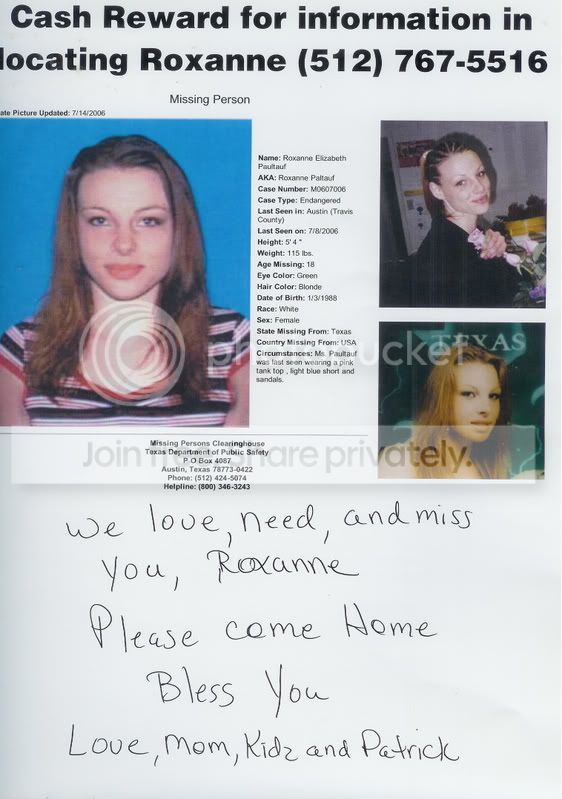 Cash Reward for information in
locating Roxanne (512) 767-5516
Missing Person
ate Picture Updated: 7/14/2006
Name: Roxanne Elizabeth
Paultauf
AKA: Roxanne Paltauf
Case Number: M0607006
Case Type: Endangered
Last Seen in: Austin (Travis
County)
Last Seen on: 7/8/2006
Height: 5' 4 "
Weight: 115 lbs.
Age Missing: 18
Eye Color: Green
Hair Color: Blonde
Date of Birth: 1/3/1988
Race: White
Sex: Female
State Missing From: Texas
Country Missing From: USA
Circumstances: Ms. Paultauf
was last seen wearing a pink
tank top , light blue short and
sandals.
TEXAS
photobucket
Missing Persons Clearinghouse
Texas Department of Public Safety
P O Box 4087
Austin, Texas 78773-0422
Phone: (512) 424-5074
Helpline: (800) 346-3243
share privately.
We love, need, and miss
you, Roxanne
Please come Home
Bless You
Love, Mom, Kidz and Patrick